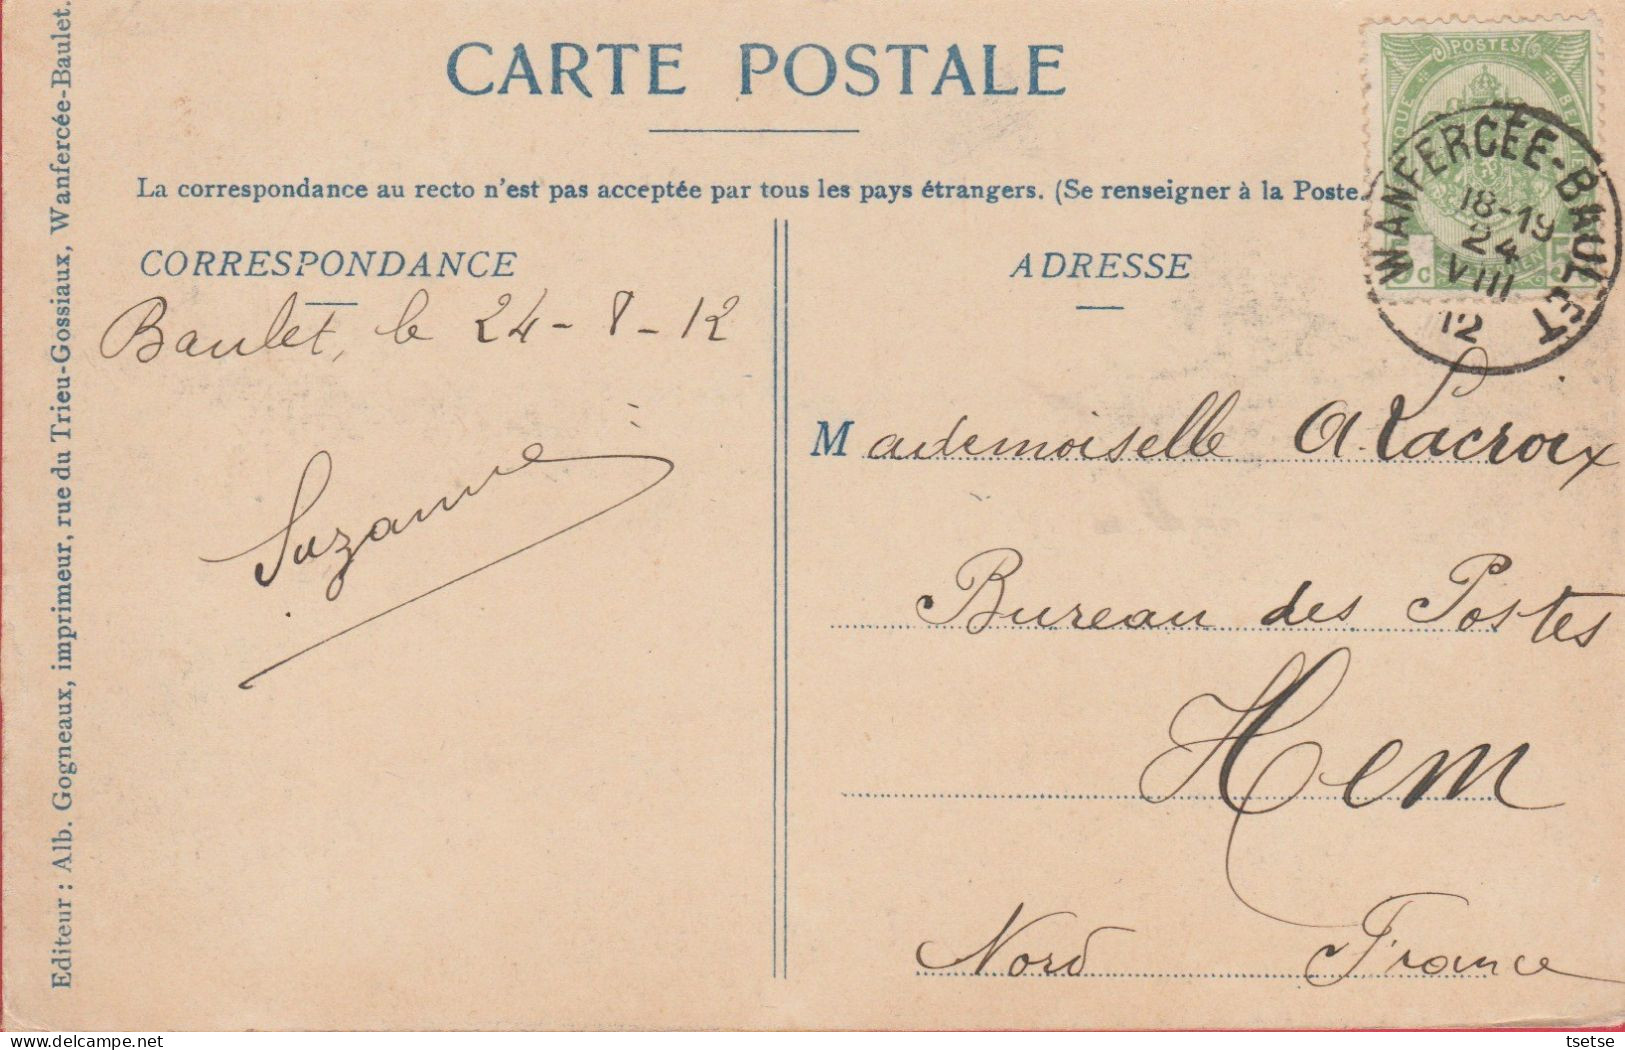 CARTE POSTALE
La correspondance au recto n'est pas acceptée par tous les pays étrangers. (Se renseigner à la Poste
CORRESPONDANCE
Baulet, le 24-8-12
Suzanne
Editeur : Alb. Gogneaux, imprimeur, rue du Trieu-Gossiaux, Wanfercée-Baulet.
POSTES
5c
WANFERCÉE-BAULET
18-19
24
VIII
12
ADRESSE
Mademoiselle A. Lacroix
Bureau des Postes
Hem
Nord France
delcampe.net
tsetse